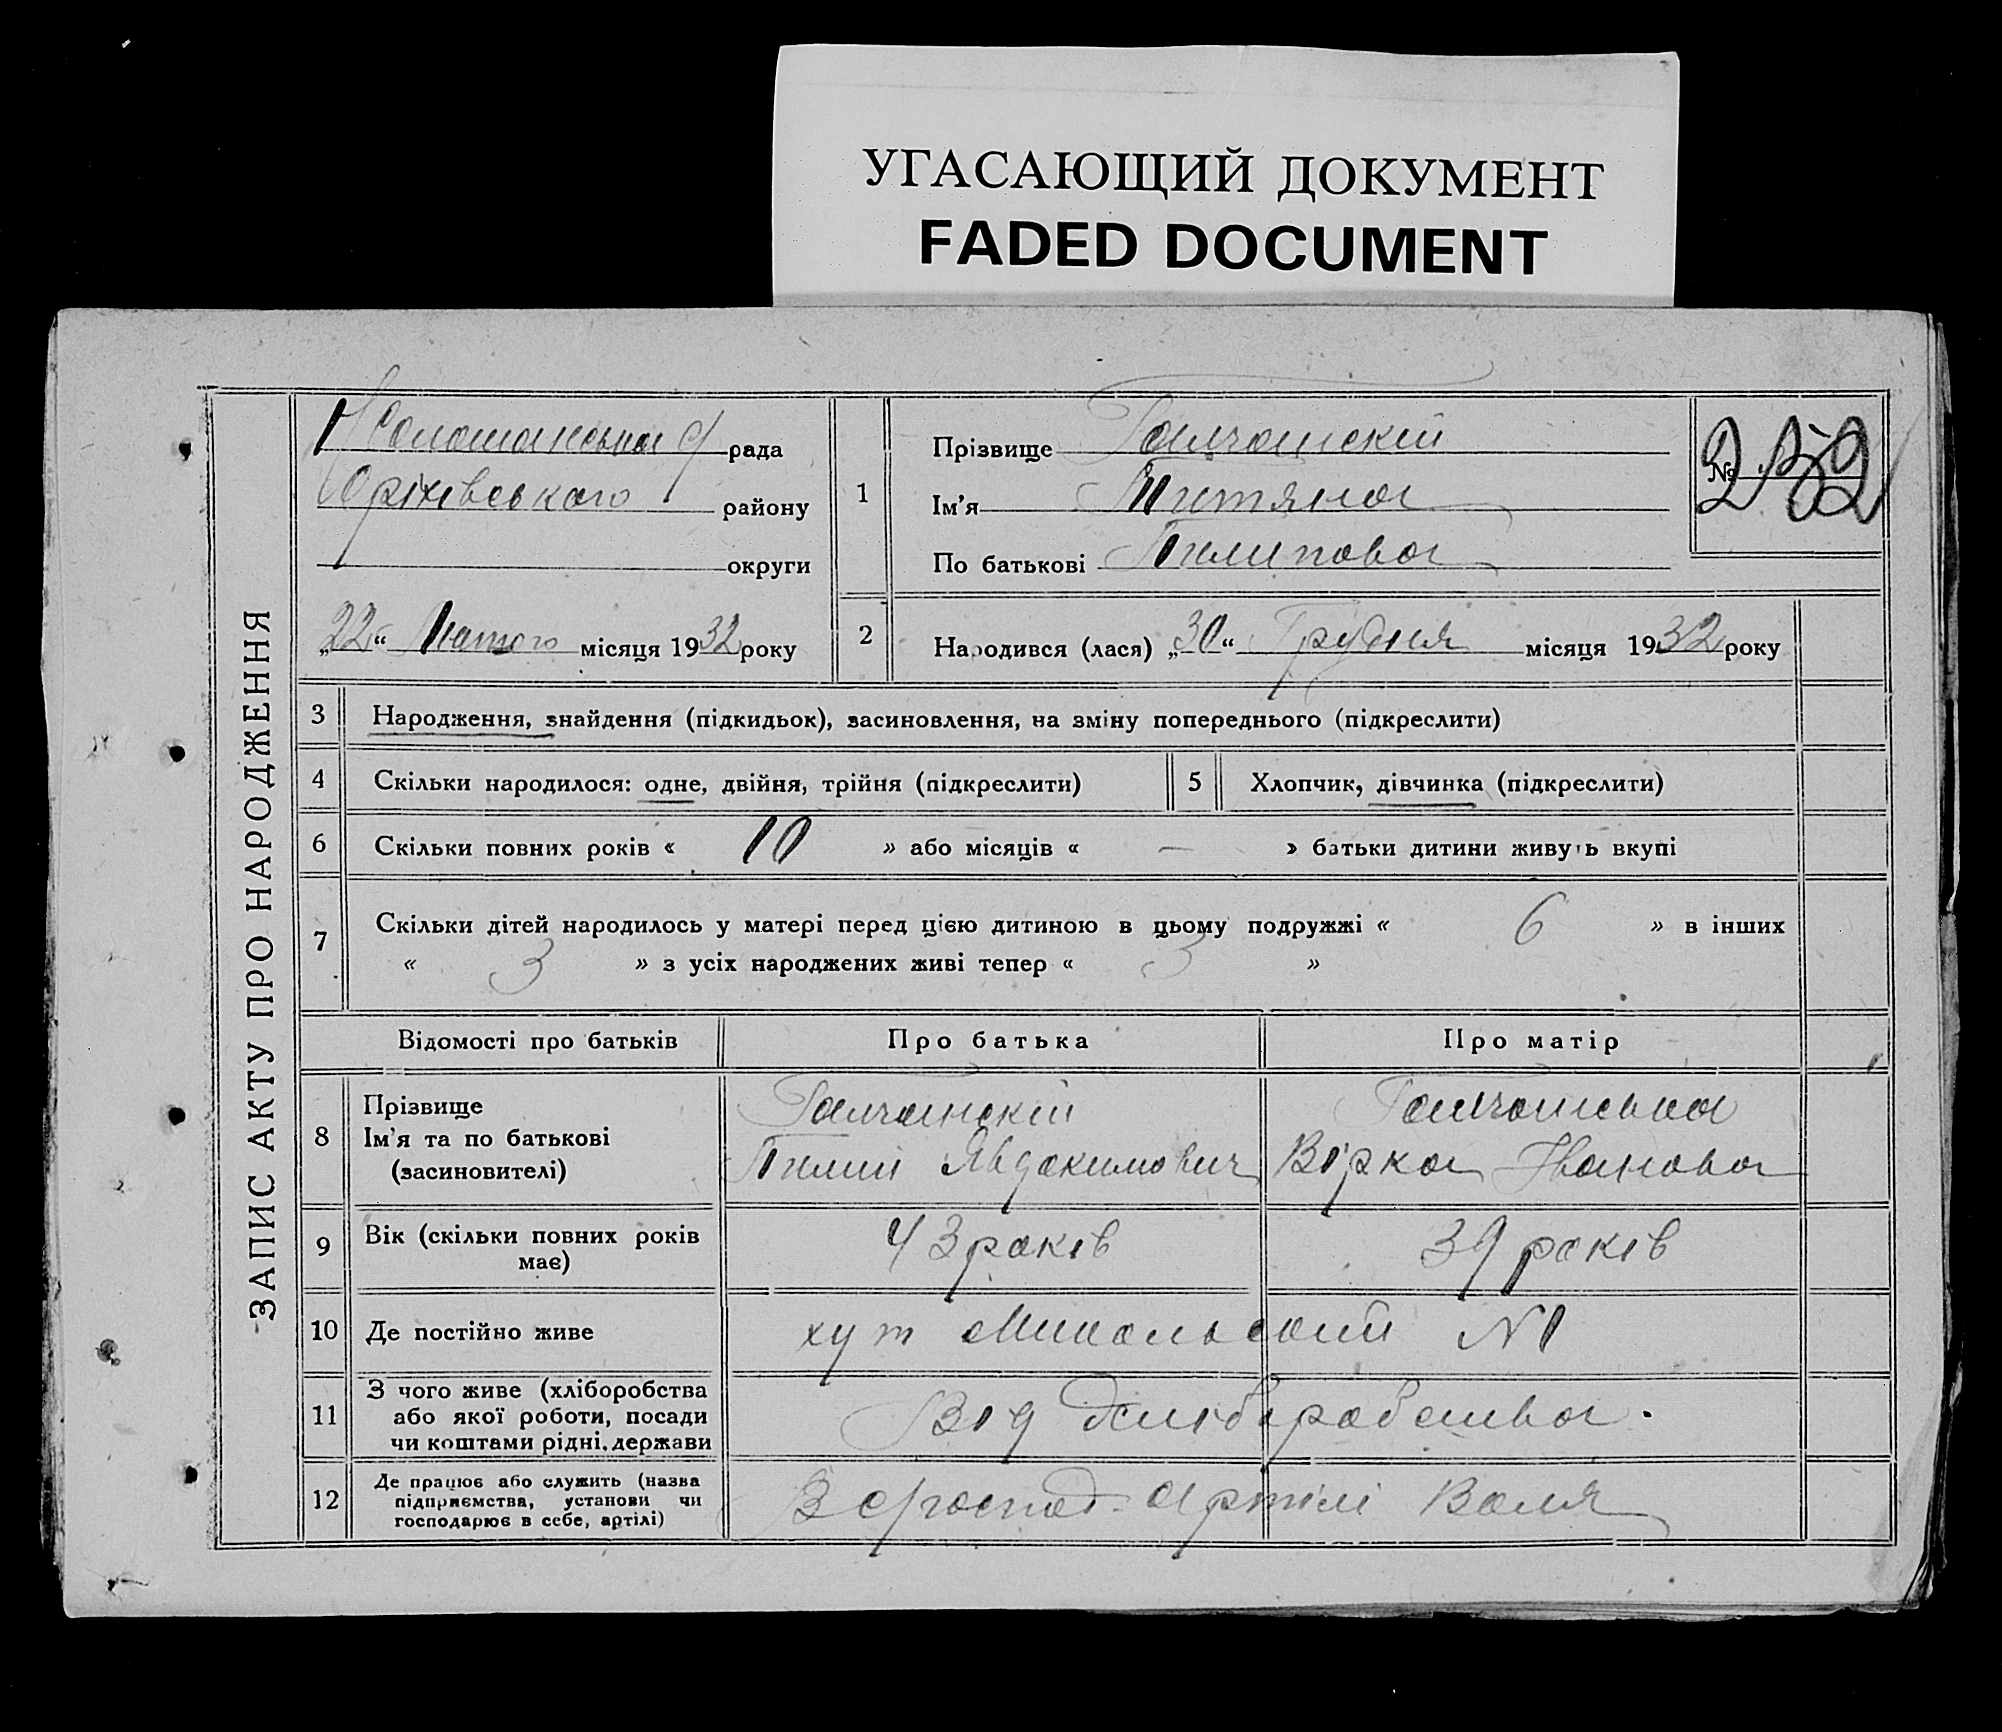 УГАСАЮЩИЙ ДОКУМЕНТ
FADED DOCUMENT
ЗАПИС АКТУ ПРО НАРОДЖЕННЯ
рада
Оріхівського району
округи
„22“ Лютого місяця 1932 року
1
Прізвище Галчанскій
Ім'я Титяна
По батькові Пилипова
№ 252
2
Народився (лася) „30“ Грудня місяця 1932 року
3 Народження, знайдення (підкидьок), засиновлення, на зміну попереднього (підкреслити)
4 Скільки народилося: одне, двійня, трійня (підкреслити) 5 Хлопчик, дівчинка (підкреслити)
6 Скільки повних років « 10 » або місяців « — » батьки дитини живуть вкупі
7 Скільки дітей народилось у матері перед цією дитиною в цьому подружжі « 6 » в інших
« 3 » з усіх народжених живі тепер « 3 »
Відомості про батьків Про батька Про матір
8 Прізвище
Ім'я та по батькові
(засиновителі)
Галчанскій
Пилип Явдокимович
Галчанська
Вірка Іванова
9 Вік (скільки повних років
має)
43 років 39 років
10 Де постійно живе хут Микольский N1
11 З чого живе (хліборобства
або якої роботи, посади
чи коштами рідні, держави
Від хліборобства.
12 Де працює або служить (назва
підприємства, установи чи
господарює в себе, артілі)
В с/господ. артілі Воля